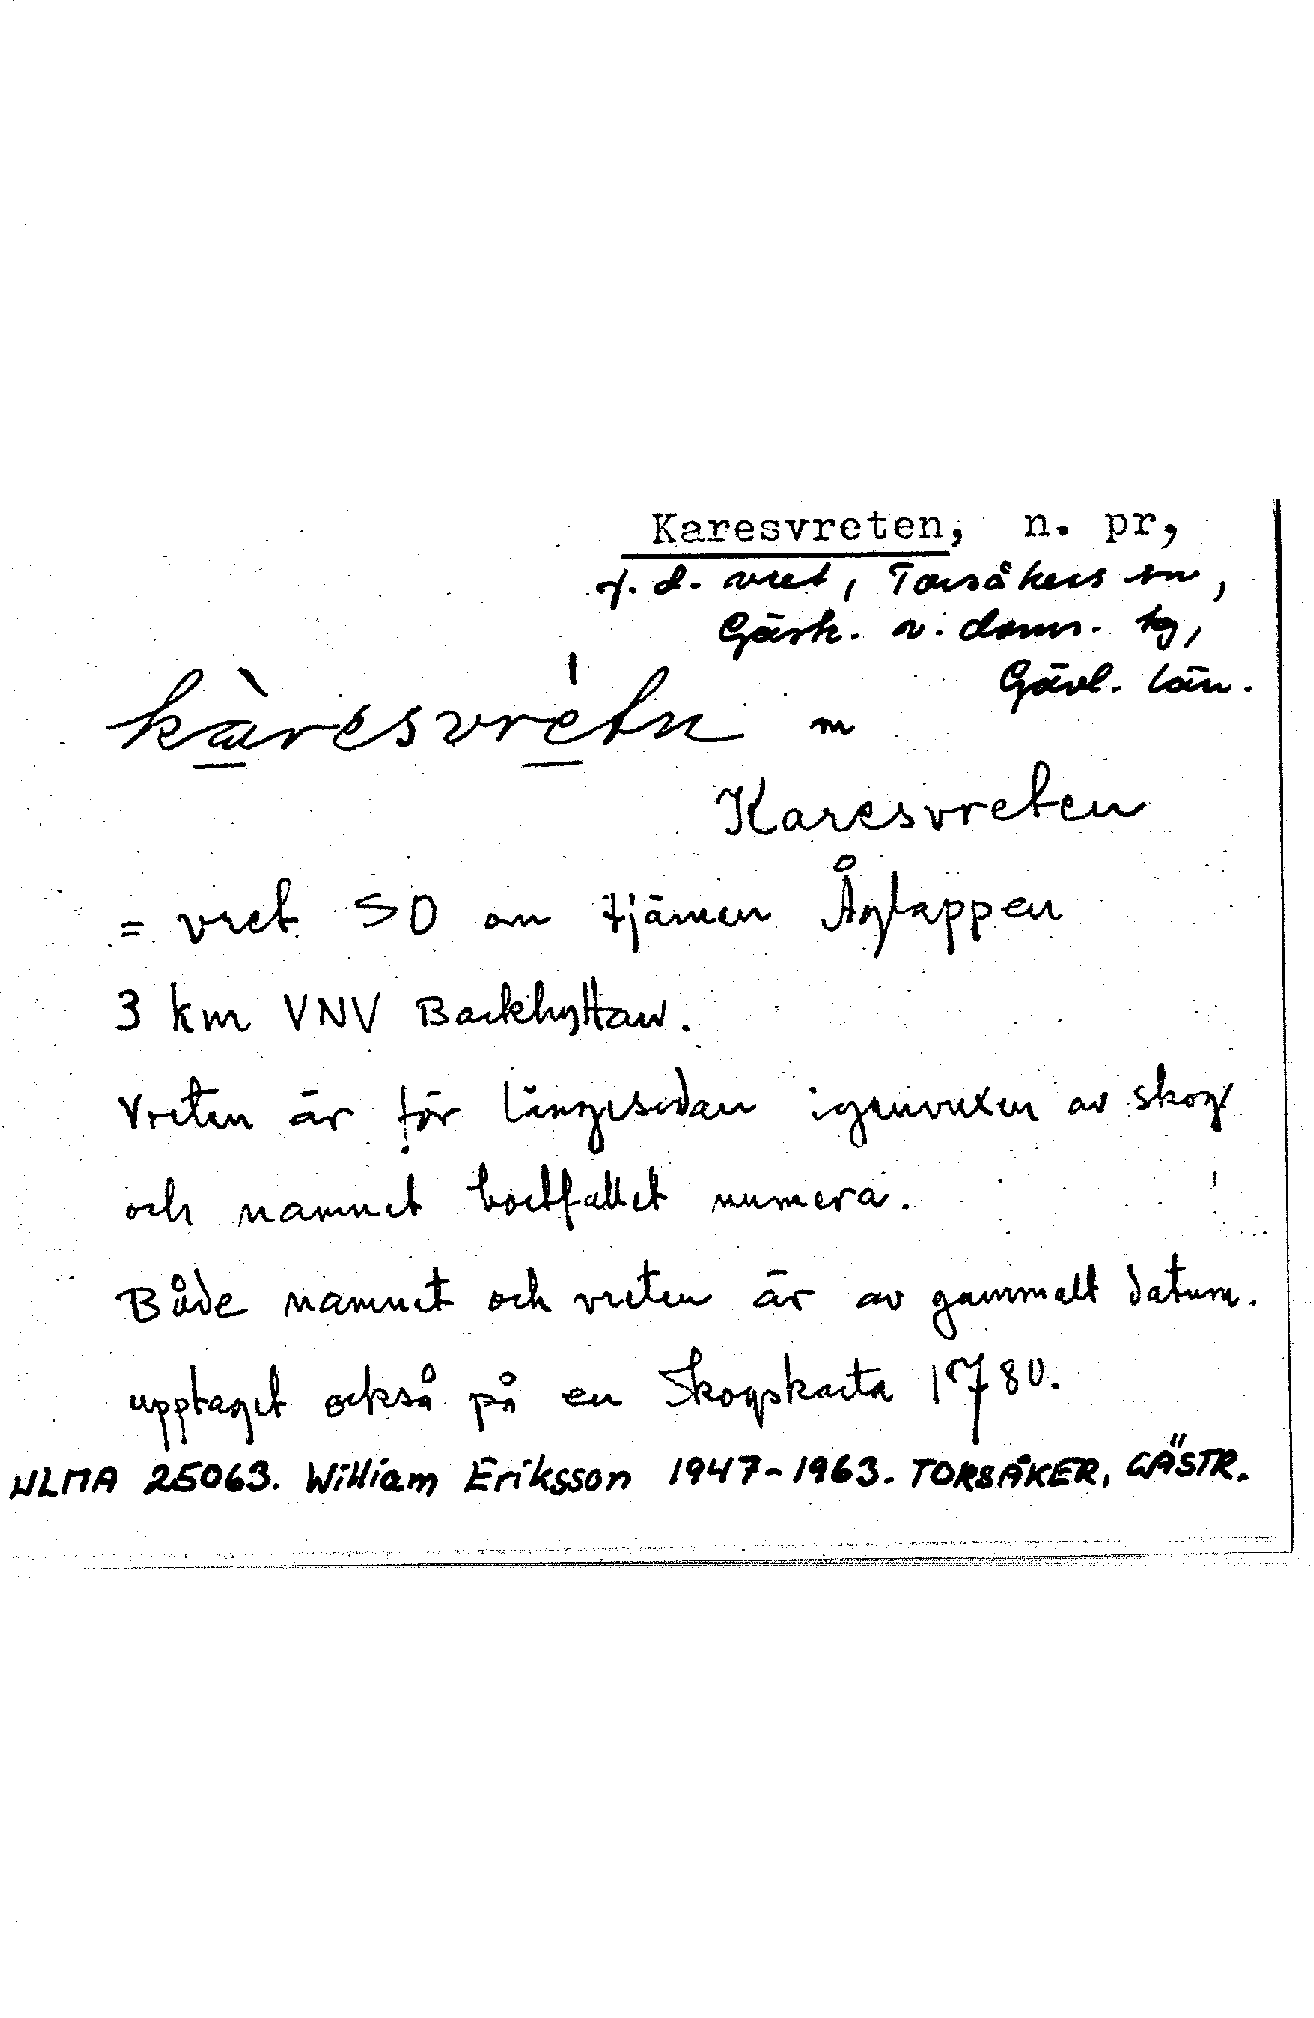 Karesvreten, n. pr,
f. d. vret, Torsåkers sn,
Gästr. v. doms. tg,
Gävl. län.
kàresvrétn m
Karesvreten
= vret SO om tjärnen Ågtappen
3 km VNV Backhyttan.
Vreten är för längesedan igenvuxen av skog
och namnet bortfallet numera.
Både namnet och vreten är av gammalt datum.
upptaget också på en Skogskarta 1780.
ULMA 25063. William Eriksson 1947-1963. TORSÅKER, GÄSTR.